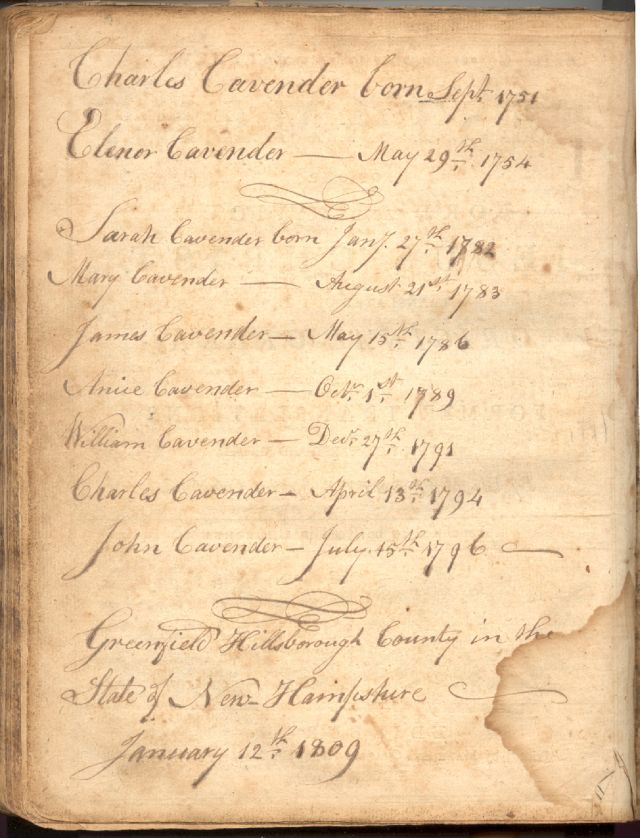 Charles Cavender born Sept. 1751
Elenor Cavender — May 29th. 1754
Sarah Cavender born Jany. 27th. 1782
Mary Cavender — August 21st. 1783
James Cavender — May 15th. 1786
Anice Cavender — Octr. 1st. 1789
William Cavender — Decr. 27th. 1791
Charles Cavender — April 13th. 1794
John Cavender — July 15th. 1796
Greenfield Hillsborough County in the
State of New-Hampshire
January 12th. 1809